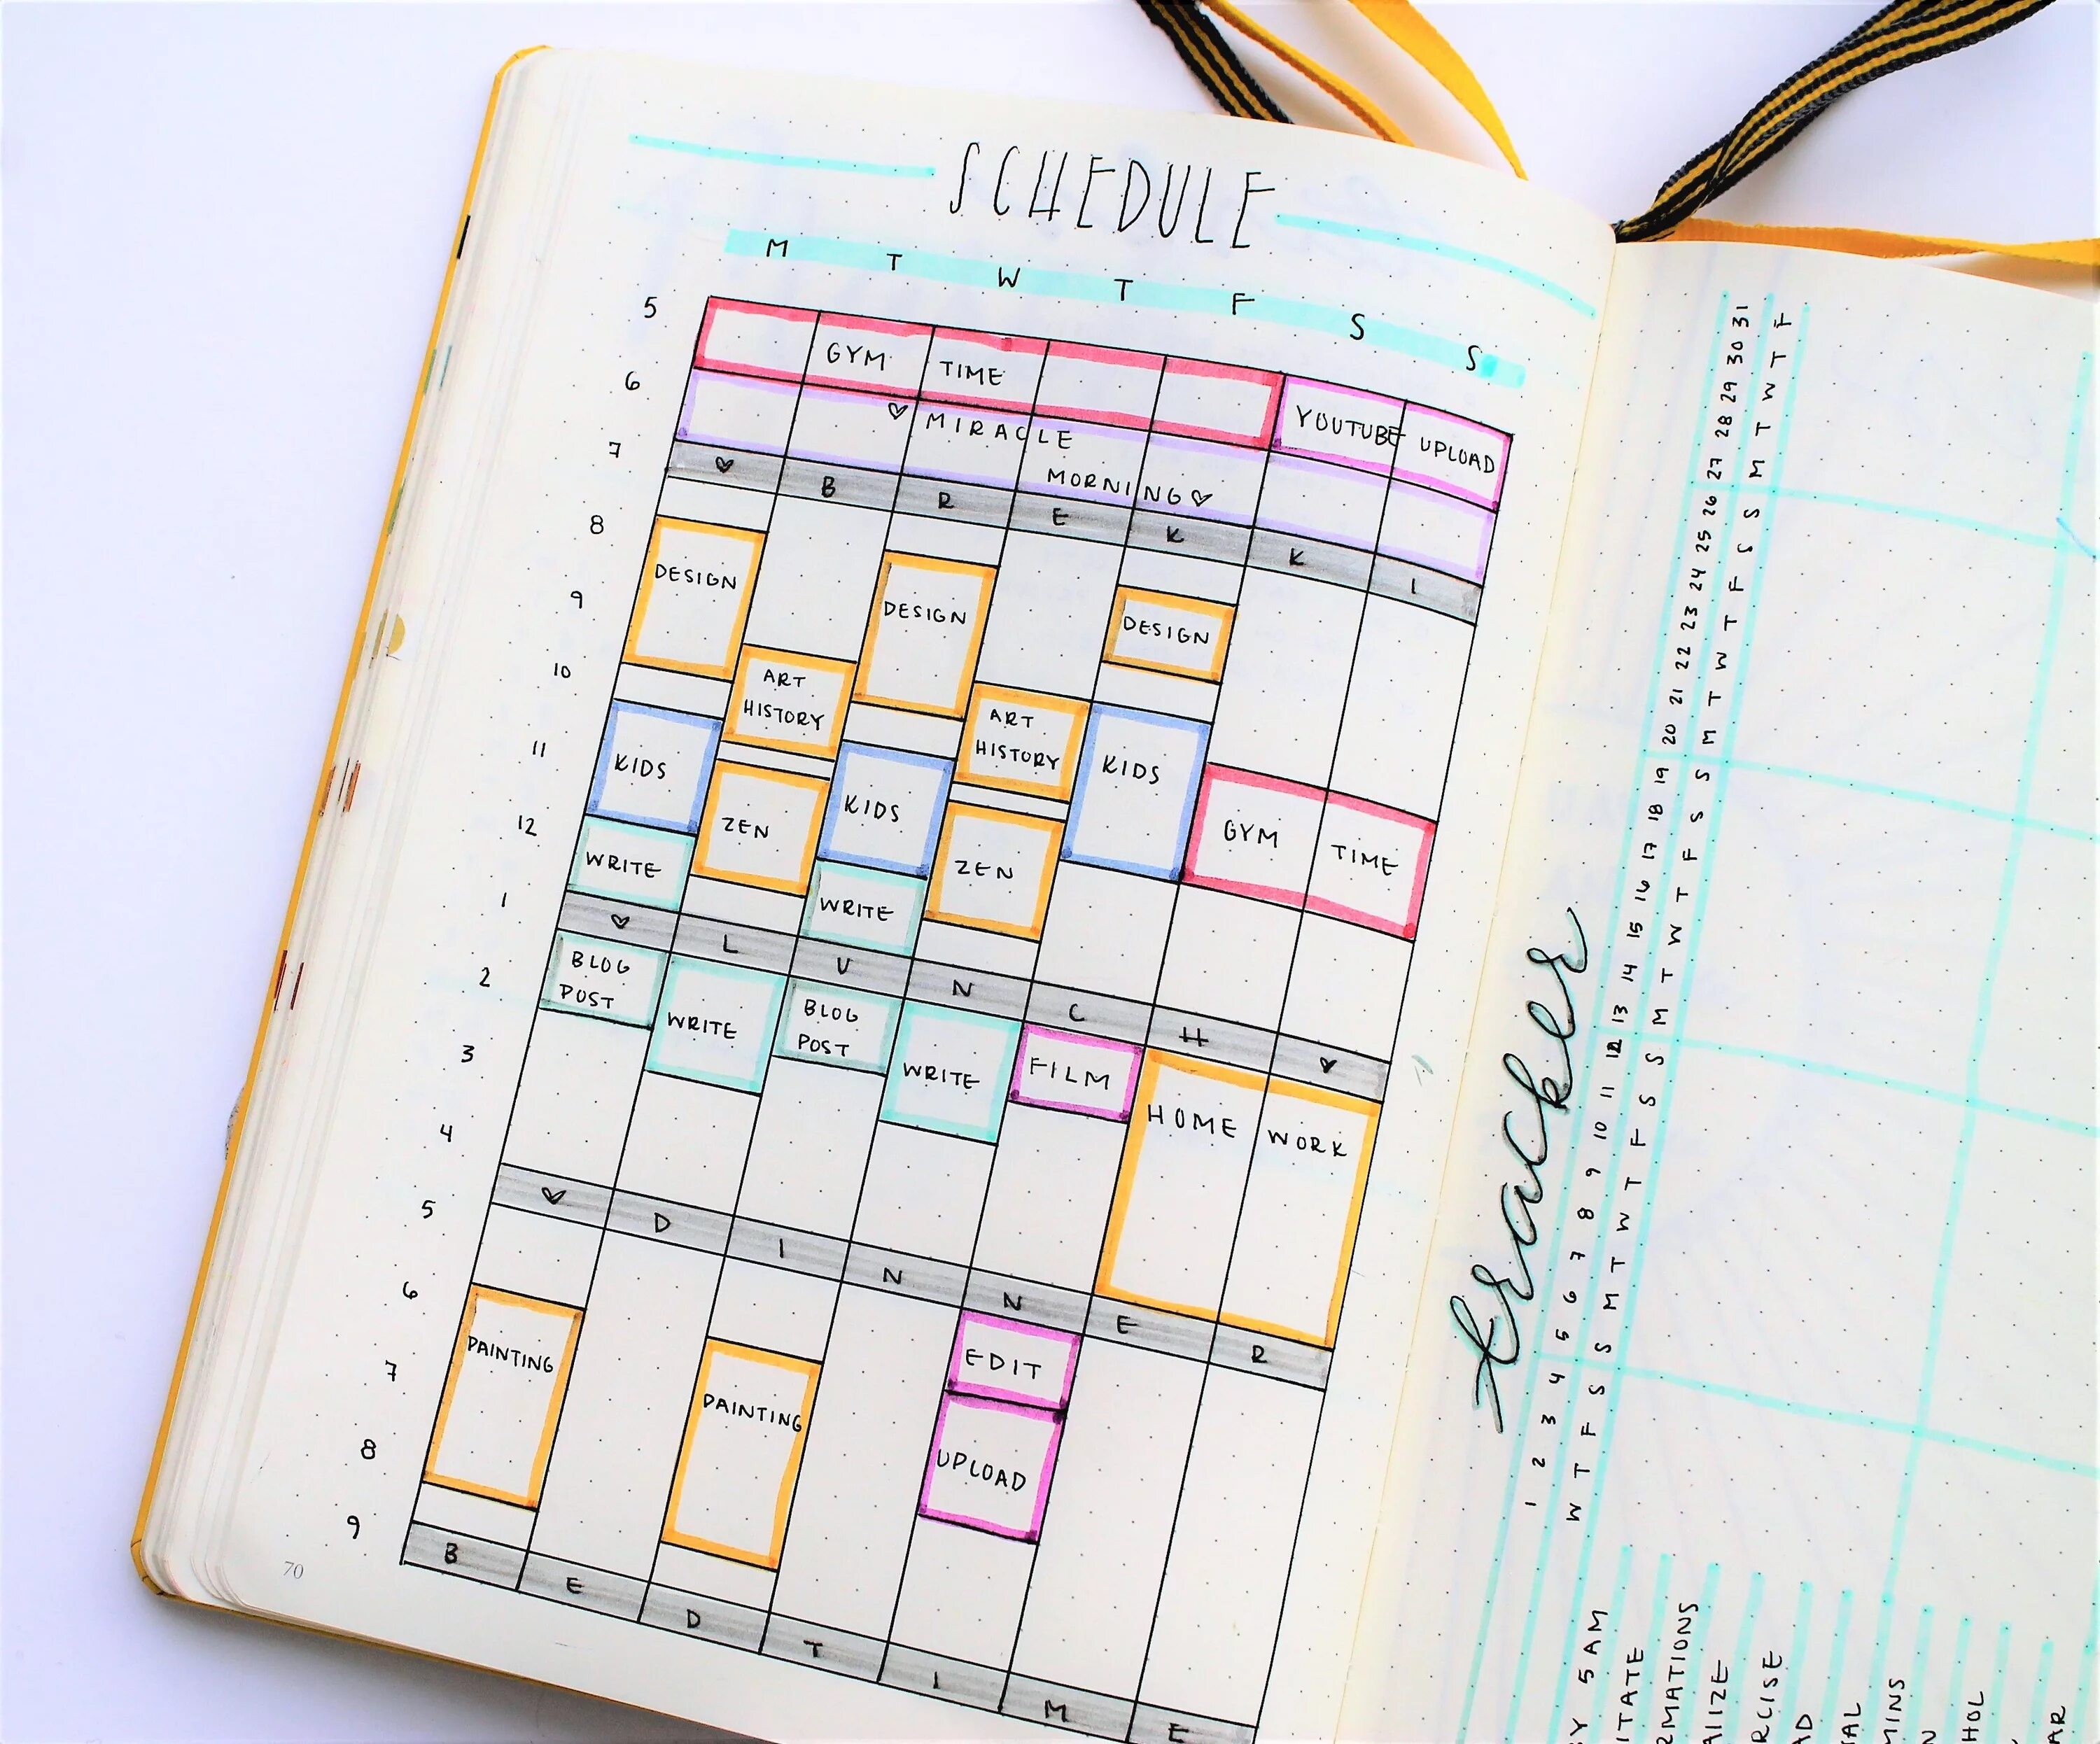 SCHEDULE
M T W T F S S
5
GYM TIME
YOUTUBE UPLOAD
6
♡ MIRACLE
MORNING ♡
7
♡ B R E K K I
8
DESIGN DESIGN DESIGN
9
ART
HISTORY
ART
HISTORY
10
KIDS KIDS KIDS
11
ZEN ZEN
GYM TIME
12
WRITE WRITE
1
♡ L U N C H ♡
BLOG
POST
BLOG
POST
2
WRITE WRITE
FILM
HOME WORK
3
4
♡ D I N N E R
5
EDIT
6
PAINTING PAINTING
7
UPLOAD
8
9
B E D T I M E
70
tracker
1 2 3 4 5 6 7 8 9 10 11 12 13 14 15 16 17 18 19 20 21 22 23 24 25 26 27 28 29 30 31
W T F S S M T W T F S S M T W T F S S M T W T F S S M T W T F
Y 5 AM
ITATE
RMATIONS
ALIZE
RCISE
AD
AL
MINS
N
HOL
AR